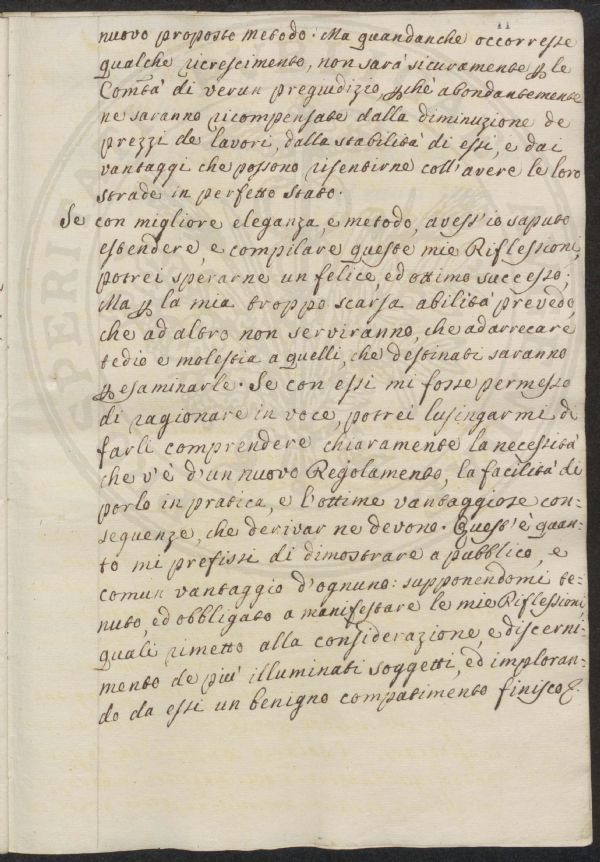 11
nuovo proposto metodo. Ma quandanche occorresse
qualche ricrescimento, non sarà sicuramente ꝑ le
Comtà di verun pregiudizio, ꝑchè abondantemente
ne saranno ricompensate dalla diminuzione de
prezzi de lavori, dalla stabilità di essi, e dai
vantaggi che possono risentirne coll'avere le loro
strade in perfetto stato.
Se con migliore eleganza, e metodo, avess'io saputo
estendere, e compilare queste mie Riflessioni,
potrei sperarne un felice, ed ottimo successo;
Ma ꝑ la mia troppo scarsa abilità prevedo,
che ad altro non serviranno, che ad arrecare
tedio e molestia a quelli, che destinati saranno
ꝑ esaminarle. Se con essi mi fosse permesso
di ragionare in voce, potrei lusingarmi di
farli comprendere chiaramente la necessità
che v'è d'un nuovo Regolamento, la facilità di
porlo in pratica, e l'ottime vantaggiose con=
seguenze, che derivar ne devono. Quest'è quan=
to mi prefissi di dimostrare a pubblico, e
comun vantaggio d'ognuno: supponendomi te=
nuto, ed obbligato a manifestare le mie Riflessioni,
quali rimetto alla considerazione, e discerni=
mento de più illuminati soggetti, ed imploran=
do da essi un benigno compatimento finisco